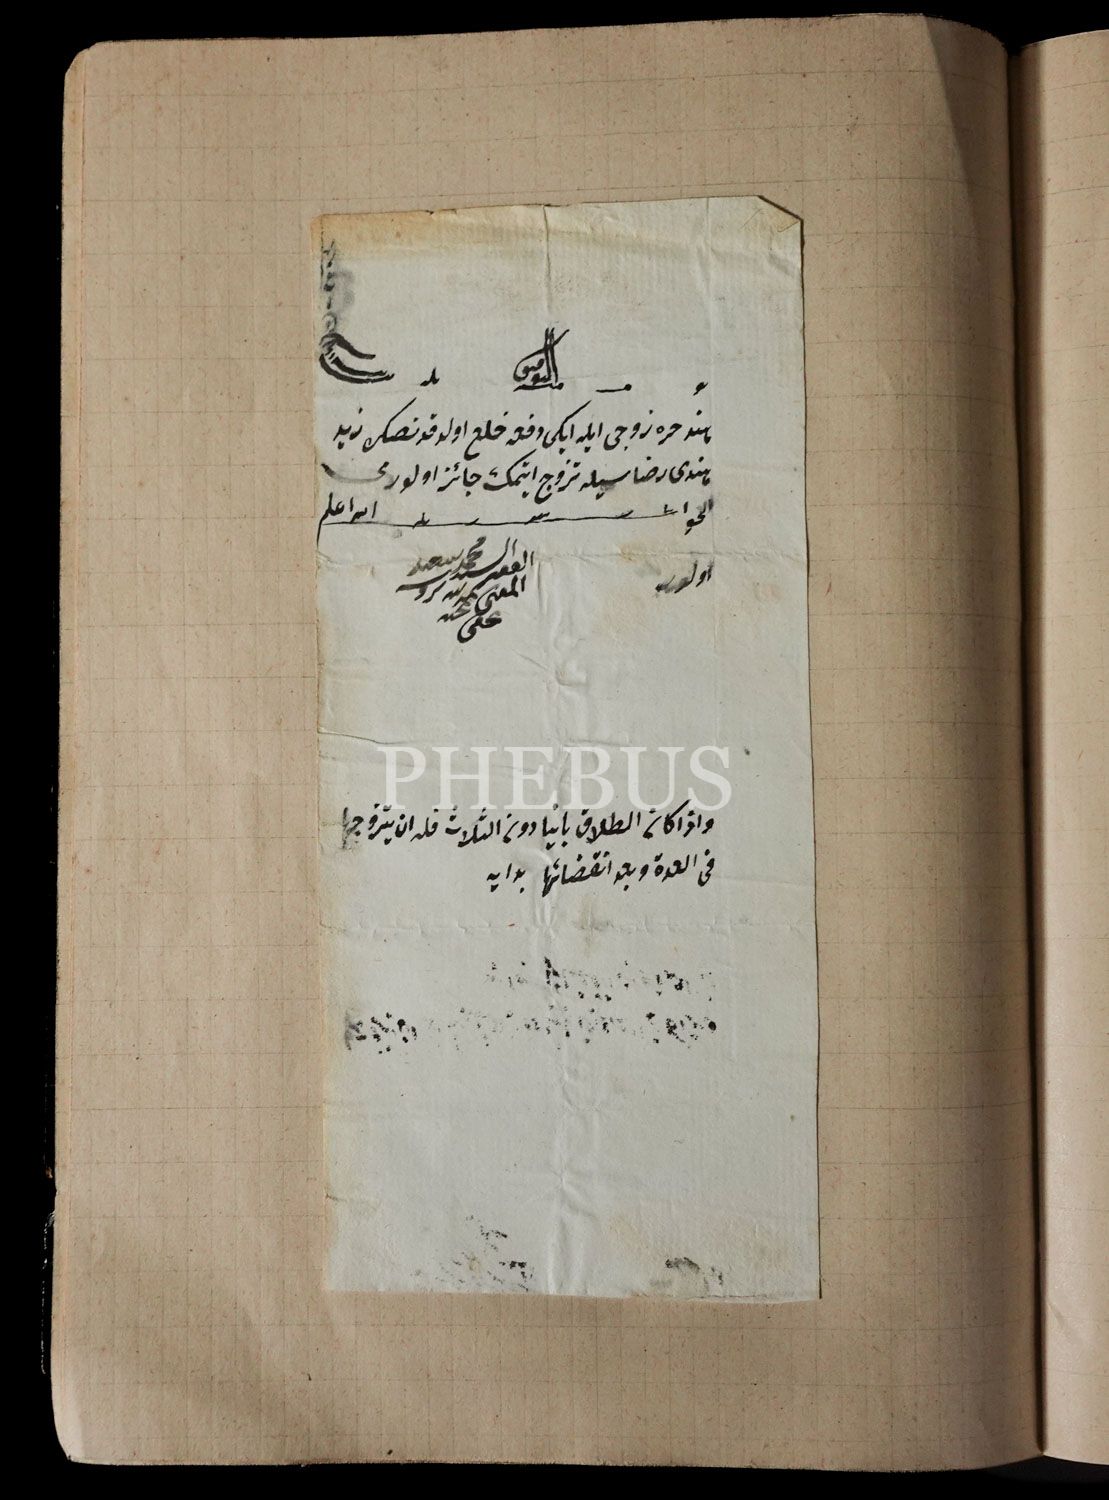 منه التوفيق
هند حره زوجی ایله ایکی دفعه خلع اولدقدنصکره زید
هندی رضاسیله تزوج ایتمك جائز اولورمی
الجواب الله اعلم
اولور
الفقیر السید محمد سعید
المفتی
عفی عنه
PHEBUS
واذا كان الطلاق بائنا دون الثلاث فله ان يتزوجها
فى العدة وبعد انقضائها هدايه